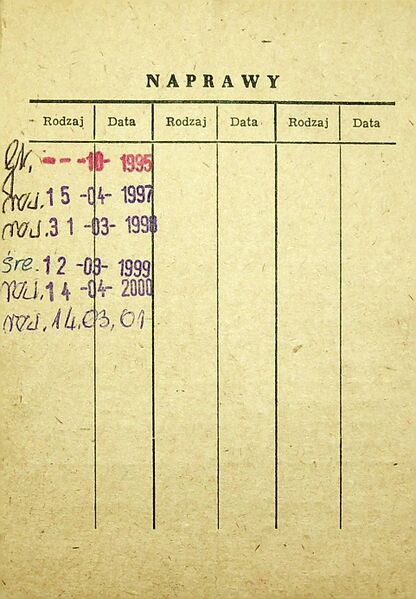 NAPRAWY
Rodzaj Data Rodzaj Data Rodzaj Data
- - - 10- 1995
15 -04- 1997
31 -03- 1998
śre. 12 -03- 1999
14 -04- 2000
14.03.01